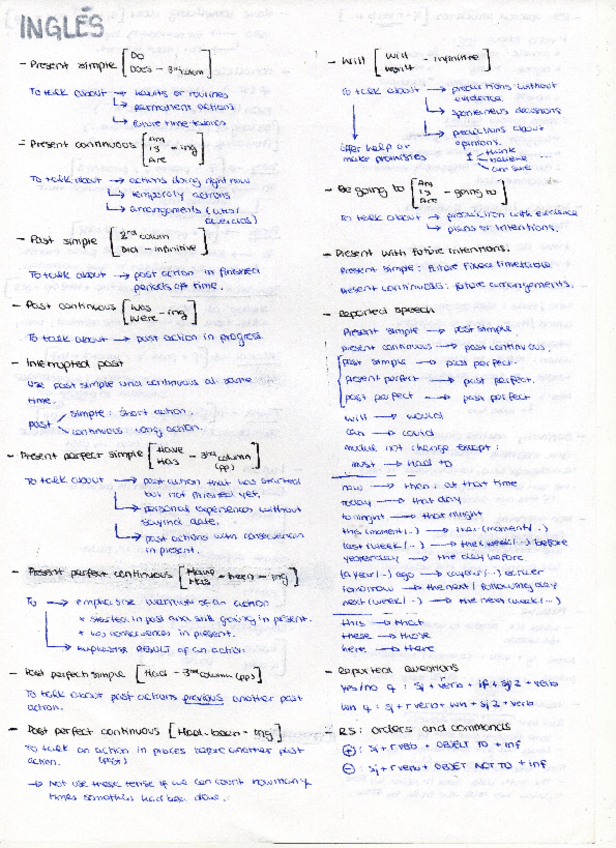 INGLÉS
- Present simple [Do
Does - 3rd column]
To talk about → habits or routines
↳ permanent actions
↳ future timetables
- Present continuous [Am
Is
Are - ing]
To talk about → actions doing right now
↳ temporaly actions
↳ arrangements
- Past simple [2nd column
Did - infinitive]
To talk about → past action in finished
periods of time.
- Past continuous [Was
Were - ing]
To talk about → past action in progress.
- Interrupted past
Use past simple and continuous at same
time.
past simple: short action.
continuous: long action.
- Present perfect simple [Have
Has - 3rd column
(pp)]
To talk about → past action that has started
but not finished yet.
↳ personal experiences without
saying date.
↳ past actions with consequences
in present.
- Present perfect continuous [Have
Has - been - ing]
To → emphasise of an action
* started in past and still going in present.
* has consequences in present.
↳ emphasise RESULT of an action
- Past perfect simple [Had - 3rd column (pp)]
To talk about past actions previous another past
action.
- Past perfect continuous [Had - been - ing]
To talk an action in proces before another past
action.
→ Not use these tense if we can count how many
times has been done.
- Will [Will
- infinitive]
To talk about → predictions without
evidence.
↳ spontaneus decisions
↳ predictions about
opinions.
offer help or
make promises
I think
believe ...
am sure
- Be going to [Am
Is
Are - going to]
To talk about → prediction with evidence
↳ plans or intentions.
- Present with future intentions.
Present simple: future fixed timetable
Present continuous: future arrangements.
- Reported speech
Present simple → past simple.
present continuous → past continuous.
past simple → past perfect.
present perfect → past perfect.
past perfect → past perfect
will → would
can → could
modals not change except:
must → had to
now → then, at that time
today → that day
tonight → that night
this (moment/..) → that (moment/..)
last (week/..) → the (week/..) before
yesterday → the day before
(a year/..) ago → a year (..) earlier
tomorrow → the next / following day
next (week/..) → the next (week/...)
this → that
these → those
here → there
- Reported questions
yes/no q: sj + verb + if + sj 2 + verb
wh q: sj + r verb + wh + sj 2 + verb
- RS: orders and commands
⊕: sj + r verb + OBJECT TO + inf
⊖: sj + r verb + OBJET NOT TO + inf.